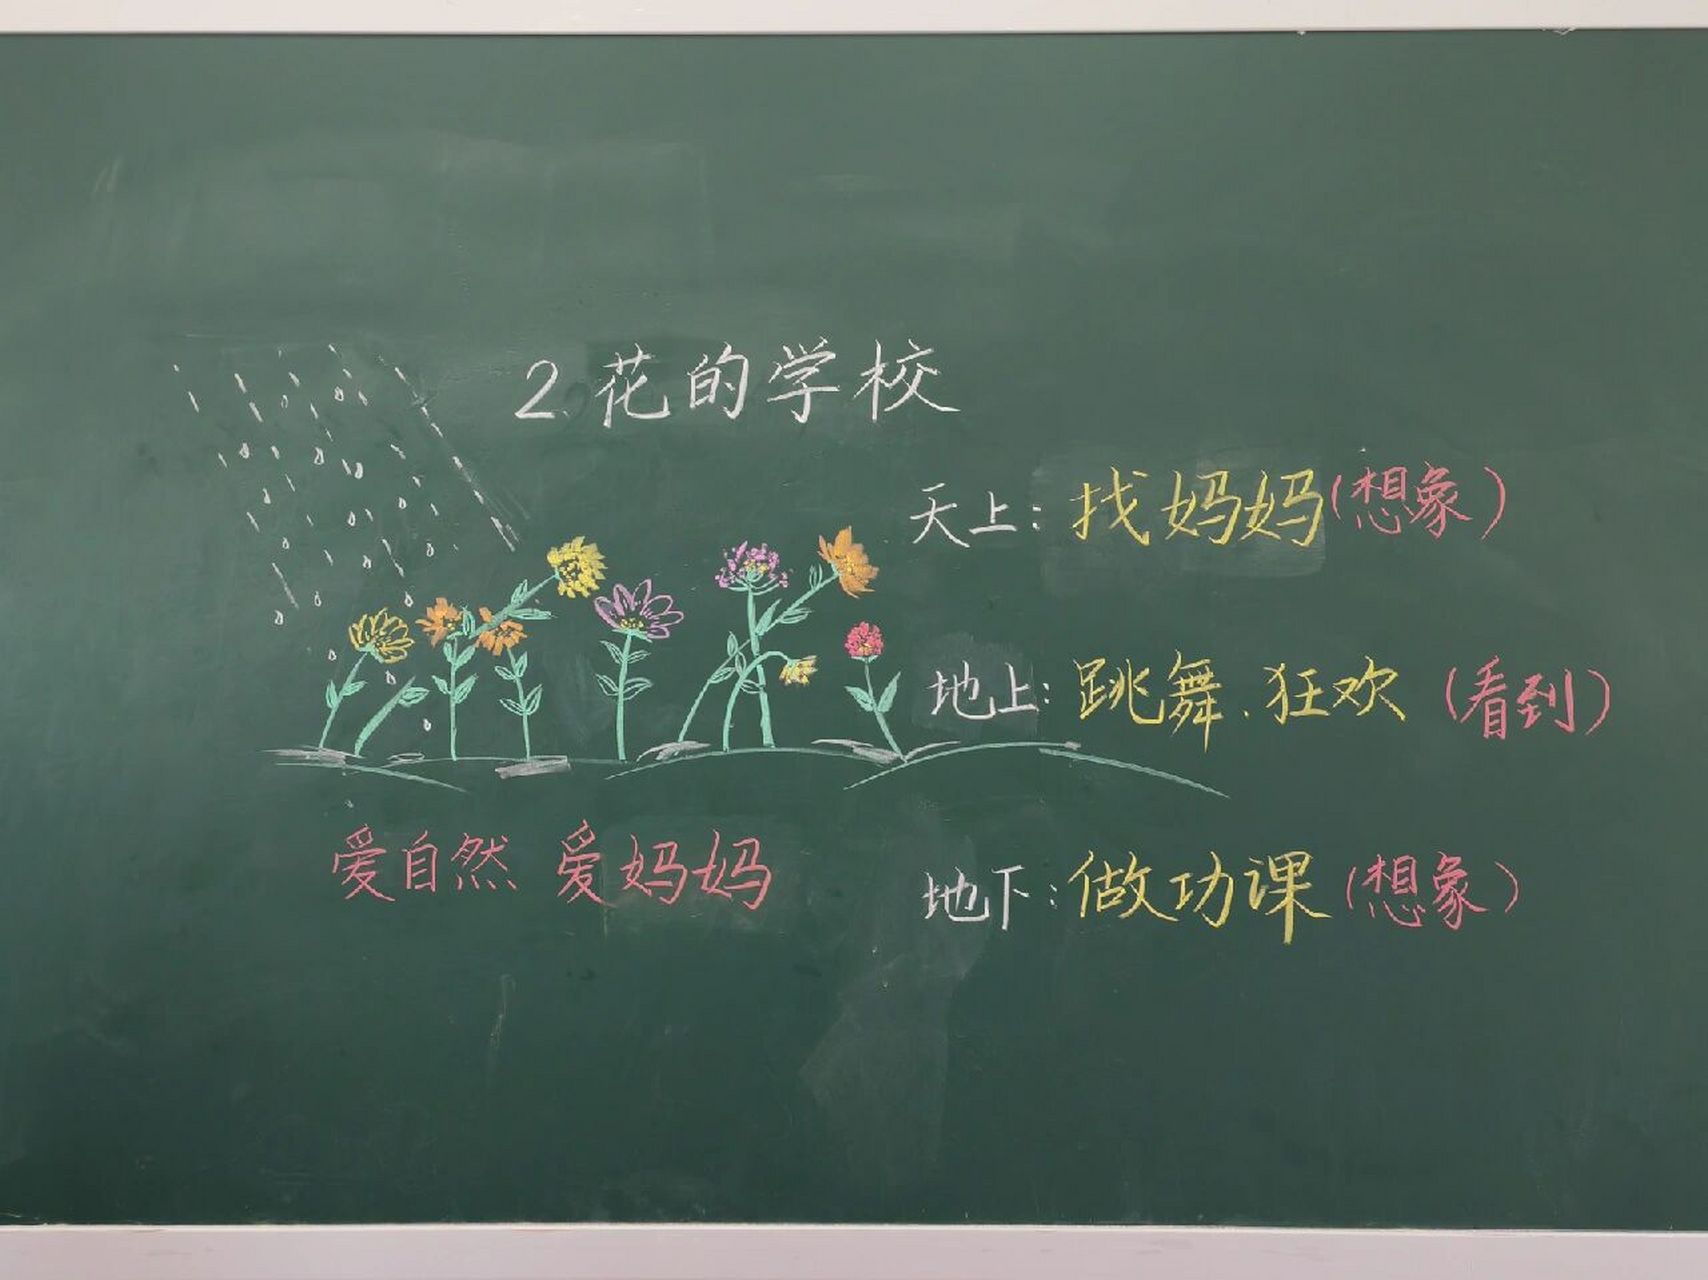 2.花的学校
天上：找妈妈（想象）
地上：跳舞.狂欢（看到）
地下：做功课（想象）
爱自然 爱妈妈